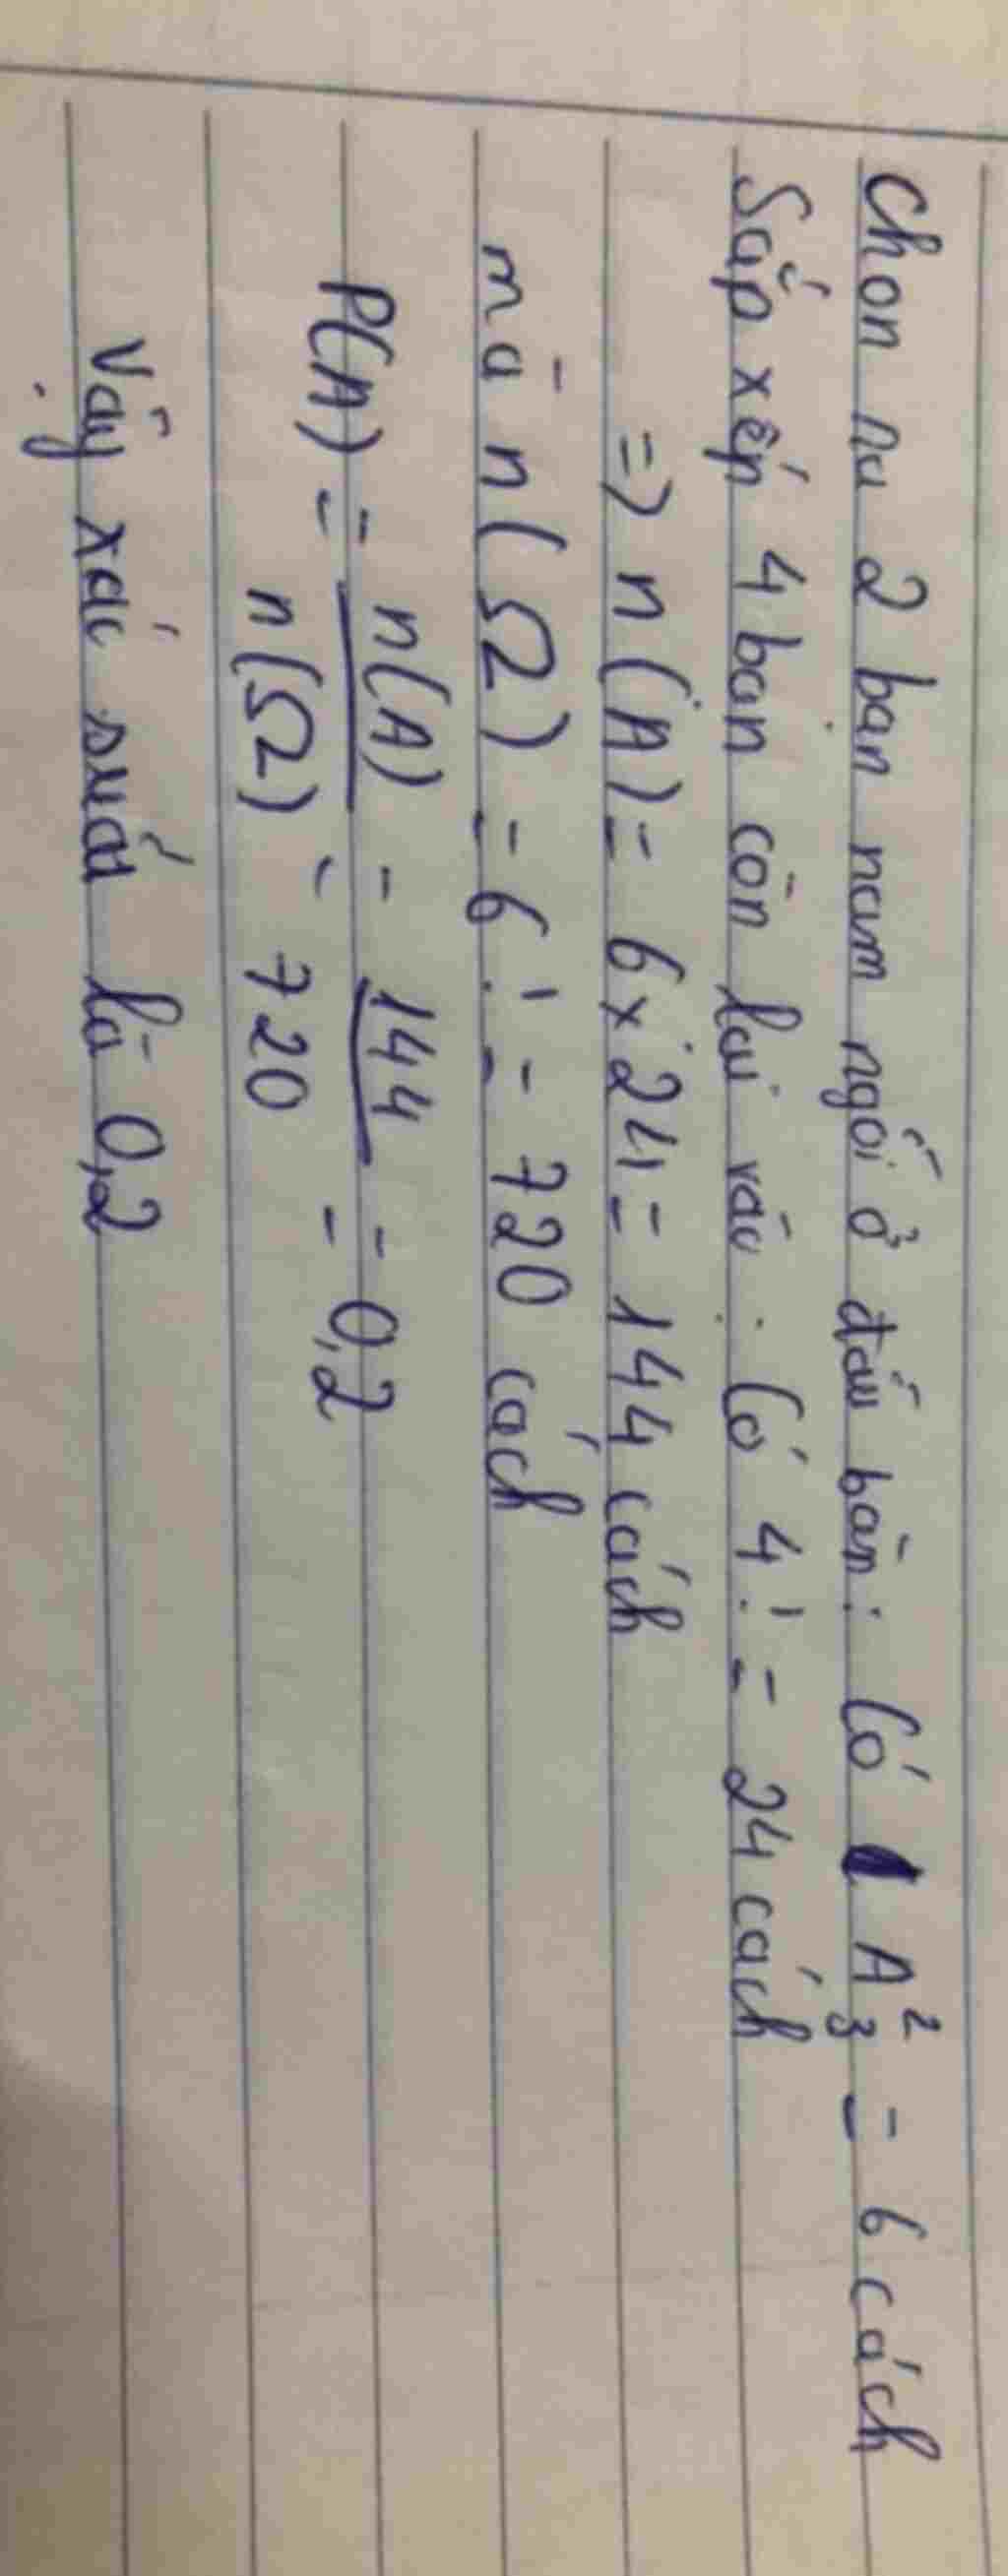 Chọn ra 2 bạn nam ngồi ở đầu bàn: Có A²₃ = 6 cách
Sắp xếp 4 bạn còn lại vào: Có 4! = 24 cách
=> n(A) = 6 x 24 = 144 cách
mà n(Ω) = 6! = 720 cách
P(A) = n(A)/n(Ω) = 144/720 = 0,2
Vậy xác suất là 0,2